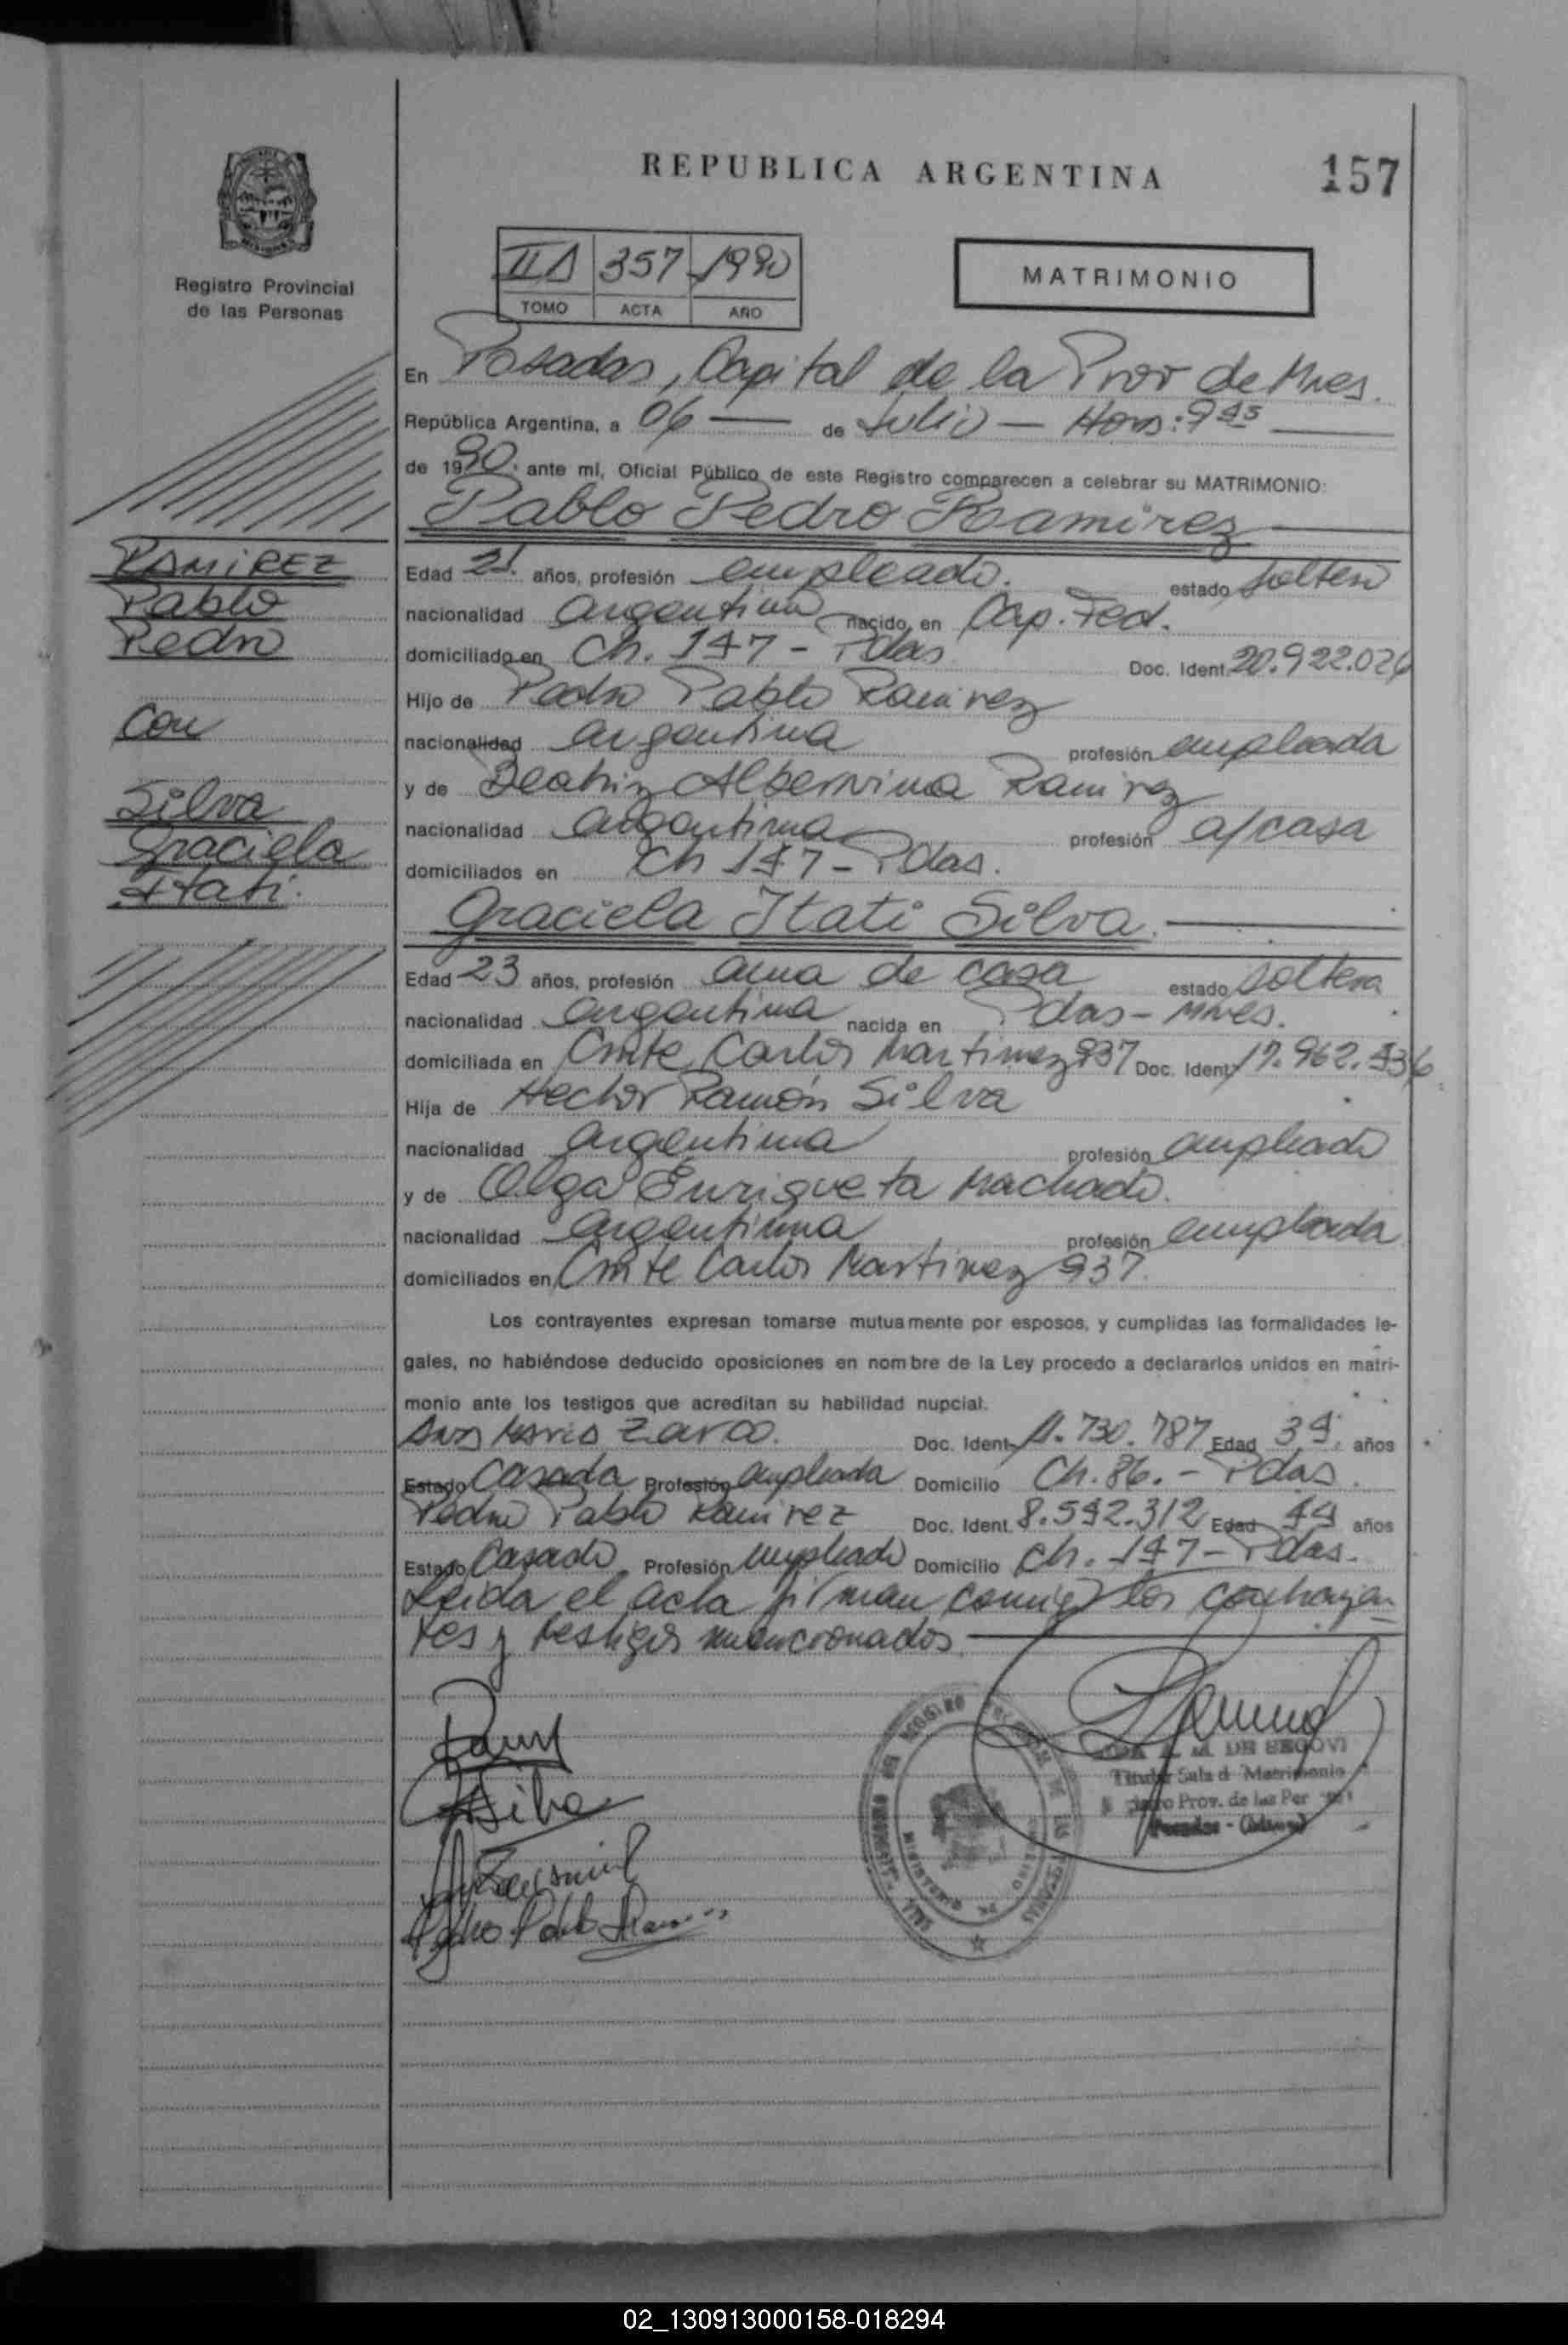 REPUBLICA ARGENTINA
157
Registro Provincial
de las Personas
II 357 1990
TOMO ACTA AÑO
MATRIMONIO
En Posadas, Capital de la Prov de Mnes.
República Argentina, a 06 — de Julio — Hora: 9 45
de 1990. ante mí, Oficial Público de este Registro comparecen a celebrar su MATRIMONIO:
Pablo Pedro Ramirez
RAMIREZ
Pablo
Pedro
con
Silva
Graciela
Itati.
Edad 21. años, profesión empleado. estado soltero
nacionalidad argentina nacido en Cap. Fed.
domiciliado en Ch. 147 - Pdas Doc. Ident. 20.922.026
Hijo de Pedro Pablo Ramirez
nacionalidad argentina profesión empleada
y de Beatriz Ramirez
nacionalidad argentina profesión a/casa
domiciliados en Ch 147 - Pdas.
Graciela Itati Silva.
Edad 23 años, profesión ama de casa estado soltera
nacionalidad argentina nacida en Pdas - Mnes.
domiciliada en Cmte Carlos Martinez 937 Doc. Ident. 17.962.
Hija de Hector Ramón Silva
nacionalidad argentina profesión empleado
y de Olga Enriqueta Machado.
nacionalidad argentina profesión empleada
domiciliados en Cmte Carlos Martinez 937.
Los contrayentes expresan tomarse mutuamente por esposos, y cumplidas las formalidades le-
gales, no habiéndose deducido oposiciones en nombre de la Ley procedo a declararlos unidos en matri-
monio ante los testigos que acreditan su habilidad nupcial.
Doc. Ident. 11.730.787 Edad 39. años
Estado Casada Profesión empleada Domicilio Ch. 86. - Pdas.
Pedro Pablo Ramirez Doc. Ident. 8.542.312 Edad 44 años
Estado Casado Profesión empleado Domicilio Ch. 147 - Pdas.
Leida el acta firman conmigo los contrayen
tes y testigos mencionados
Silva
Pedro Pablo
M. DE SEGOVI
Titular Sala d Matrimonio
Prov. de las Per
Posadas -
02_130913000158-018294